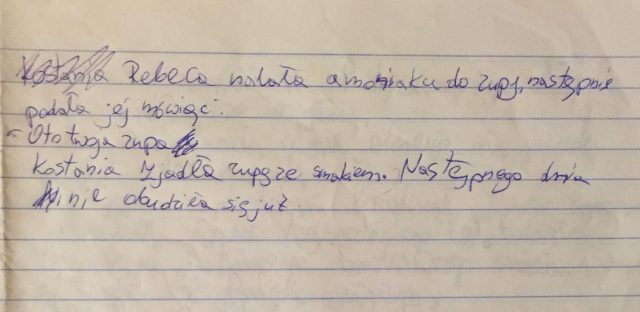 Rebeca nalała amoniaku do zupy, następnie
podała jej mówiąc:
- Oto twoja zupa
Kostania zjadła zupę ze smakiem. Następnego dnia
nie obudziła się już.